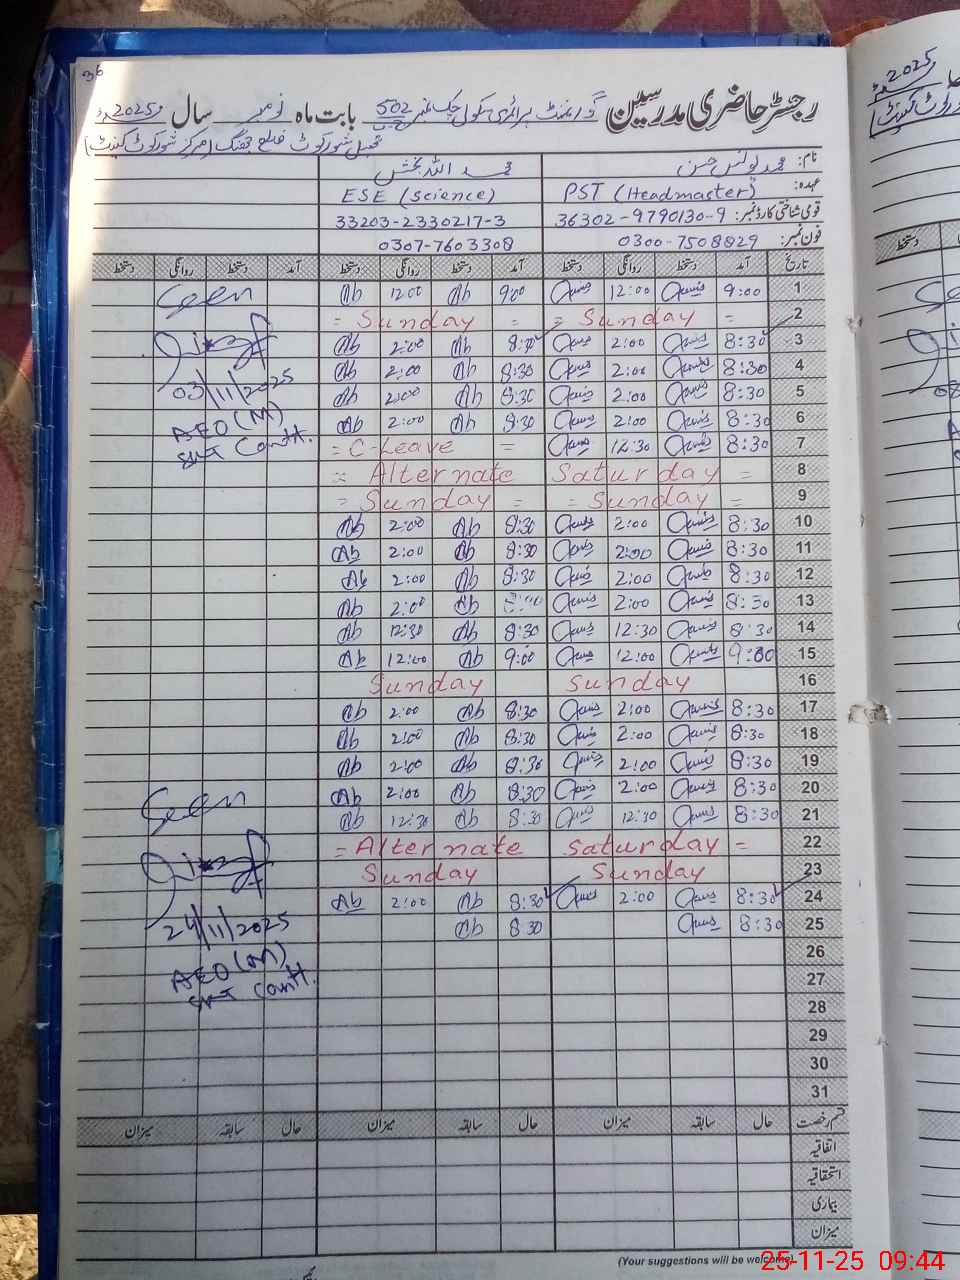 36
رجسٹر حاضری مدرسین گورنمنٹ پرائمری سکول چک نمبر 502 بابت ماہ نومبر سال 2025ء
تحصیل شورکوٹ ضلع جھنگ (مرکز شورکوٹ کینٹ)
نام: محمد یونس حسن محمد اللہ بخش
عہدہ: PST (Headmaster) ESE (Science)
قومی شناختی کارڈ نمبر: 36302-9790130-9 33203-2330217-3
فون نمبر: 0300-7508829 0307-7603308
تاریخ آمد دستخط روانگی دستخط آمد دستخط روانگی دستخط آمد دستخط روانگی دستخط
1 9:00 12:00 9:00 Ab 12:00 Ab Seen
2 = Sunday = = Sunday =
3 8:30 2:00 8:30 Ab 2:00 Ab
4 8:30 2:00 8:30 Ab 2:00 Ab 03/11/2025
5 8:30 2:00 8:30 Ab 2:00 Ab
6 8:30 2:00 8:30 Ab 2:00 Ab AEO (M)
7 8:30 12:30 = C-Leave =
8 = Alternate Saturday =
9 = Sunday = = Sunday =
10 8:30 2:00 8:30 Ab 2:00 Ab
11 8:30 2:00 8:30 Ab 2:00 Ab
12 8:30 2:00 8:30 Ab 2:00 Ab
13 8:30 2:00 Ab 2:00 Ab
14 8:30 12:30 8:30 Ab 12:30 Ab
15 9:00 12:00 9:00 Ab 12:00 Ab
16 Sunday Sunday
17 8:30 2:00 8:30 Ab 2:00 Ab
18 8:30 2:00 8:30 Ab 2:00 Ab
19 8:30 2:00 8:30 Ab 2:00 Ab
20 8:30 2:00 8:30 Ab 2:00 Ab Seen
21 8:30 12:30 8:30 Ab 12:30 Ab
22 = Alternate Saturday =
23 Sunday Sunday
24 8:30 2:00 8:30 Ab 2:00 Ab
25 8:30 8:30 Ab 24/11/2025
26 AEO (M)
27
28
29
30
31
قسم رخصت حال سابقہ میزان حال سابقہ میزان حال سابقہ میزان
اتفاقیہ
استحقاقیہ
بیماری
میزان
(Your suggestions will be welcome)
25-11-25 09:44